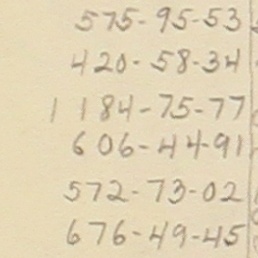 575-95-53
420-58-34
1 184-75-77
606-44-91
572-73-02
676-49-45